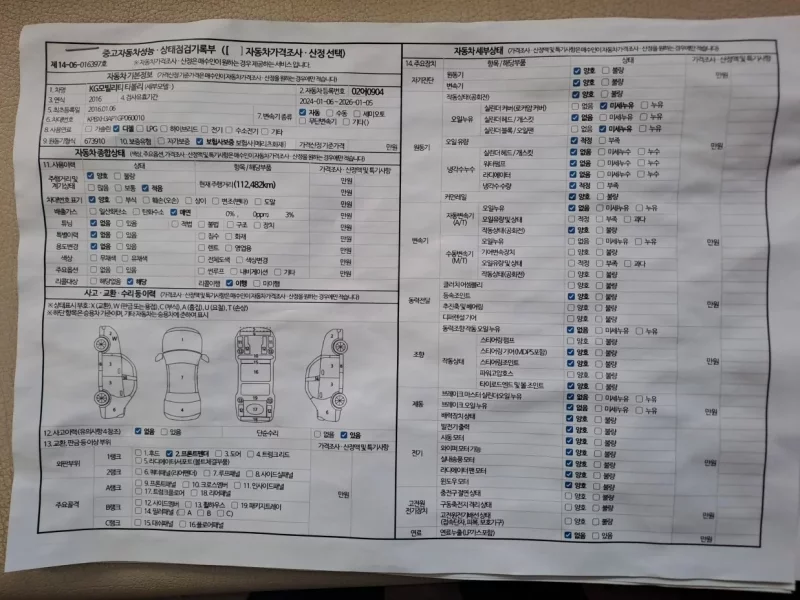 중고자동차성능 · 상태점검기록부 ([ ] 자동차가격조사 · 산정 선택)
제 14-06-016397호
※ 자동차가격조사 · 산정은 매수인이 원하는 경우 제공하는 서비스입니다.
자동차 기본정보 (가격산정 기준가격은 매수인이 자동차가격조사 · 산정을 원하는 경우에만 적습니다)
1. 차명 KG모빌리티 티볼리 (세부모델: )
2. 자동차등록번호 02어0904
3. 연식 2016
4. 검사유효기간 2024-01-06 ~2026-01-05
5. 최초등록일 2016.01.06
6. 차대번호
7. 변속기 종류 자동 수동 세미오토
무단변속기 기타 ( )
8. 사용연료 가솔린 디젤 LPG 하이브리드 전기 수소전기 기타
9. 원동기형식 673910 10. 보증유형 자가보증 보험사보증 가격산정 기준가격 만원
자동차 종합상태 (색상, 주요옵션, 가격조사 · 산정액 및 특기사항은 매수인이 자동차가격조사 · 산정을 원하는 경우에만 적습니다)
11. 사용이력 상태 항목 / 해당부품 가격조사 · 산정액 및 특기사항
주행거리 및 계기상태 양호 불량 만원
많음 보통 적음 현재 주행거리 (112,482km) 만원
차대번호 표기 양호 부식 훼손(오손) 상이 변조(변타) 도말 만원
배출가스 일산화탄소 탄화수소 매연 0%, 0ppm, 3% 만원
튜닝 없음 있음 적법 불법 구조 장치 만원
특별이력 없음 있음 침수 화재 만원
용도변경 없음 있음 렌트 영업용 만원
색상 무채색 유채색 전체도색 색상변경 만원
주요옵션 없음 있음 썬루프 내비게이션 기타 만원
리콜대상 해당없음 해당 리콜이행 이행 미이행
사고 · 교환 · 수리 등 이력 (가격조사 · 산정액 및 특기사항은 매수인이 자동차가격조사 · 산정을 원하는 경우에만 적습니다)
※ 상태표시 부호 : X (교환), W (판금 또는 용접), C (부식), A (흠집), U (요철), T (손상)
※ 하단 항목은 승용차 기준이며, 기타 자동차는 승용차에 준하여 표시
12. 사고이력 (유의사항 4 참조) 없음 있음 단순수리 없음 있음
13. 교환, 판금 등 이상 부위 가격조사 · 산정액 및 특기사항
외판부위 1랭크 1. 후드 2. 프론트펜더 3. 도어 4. 트렁크리드
5. 라디에이터서포트(볼트체결부품)
2랭크 6. 쿼터패널(리어펜더) 7. 루프패널 8. 사이드실패널
주요골격 A랭크 9. 프론트패널 10. 크로스멤버 11. 인사이드패널
17. 트렁크플로어 18. 리어패널 만원
B랭크 12. 사이드멤버 13. 휠하우스 19. 패키지트레이
14. 필러패널 ( A B C)
C랭크 15. 대쉬패널 16. 플로어패널
자동차 세부상태 (가격조사 · 산정액 및 특기사항은 매수인이 자동차가격조사 · 산정을 원하는 경우에만 적습니다)
14. 주요장치 항목 / 해당부품 상태 가격조사 · 산정액 및 특기사항
자기진단 원동기 양호 불량 만원
변속기 양호 불량
원동기 작동상태(공회전) 양호 불량
오일누유 실린더 커버(로커암 커버) 없음 미세누유 누유
실린더 헤드 / 개스킷 없음 미세누유 누유
실린더 블록 / 오일팬 없음 미세누유 누유
오일 유량 적정 부족
냉각수누수 실린더 헤드 / 개스킷 없음 미세누수 누수 만원
워터펌프 없음 미세누수 누수
라디에이터 없음 미세누수 누수
냉각수 수량 적정 부족
커먼레일 양호 불량
변속기 자동변속기 (A/T) 오일누유 없음 미세누유 누유
오일유량 및 상태 적정 부족 과다
작동상태(공회전) 양호 불량
수동변속기 (M/T) 오일누유 없음 미세누유 누유 만원
기어변속장치 양호 불량
오일유량 및 상태 적정 부족 과다
작동상태(공회전) 양호 불량
동력전달 클러치 어셈블리 양호 불량
등속조인트 양호 불량 만원
추진축 및 베어링 양호 불량
디퍼렌셜 기어 양호 불량
조향 동력조향 작동 오일 누유 없음 미세누유 누유
작동상태 스티어링 펌프 양호 불량
스티어링 기어(MDPS포함) 양호 불량 만원
스티어링조인트 양호 불량
파워고압호스 양호 불량
타이로드엔드 및 볼 조인트 양호 불량
제동 브레이크 마스터 실린더오일 누유 없음 미세누유 누유
브레이크 오일 누유 없음 미세누유 누유 만원
배력장치 상태 양호 불량
전기 발전기 출력 양호 불량
시동 모터 양호 불량
와이퍼 모터 기능 양호 불량
실내송풍 모터 양호 불량 만원
라디에이터 팬 모터 양호 불량
윈도우 모터 양호 불량
고전원 전기장치 충전구 절연 상태 양호 불량
구동축전지 격리 상태 양호 불량 만원
고전원전기배선 상태 양호 불량
(접속단자, 피복, 보호기구)
연료 연료누출(LP가스포함) 없음 있음 만원